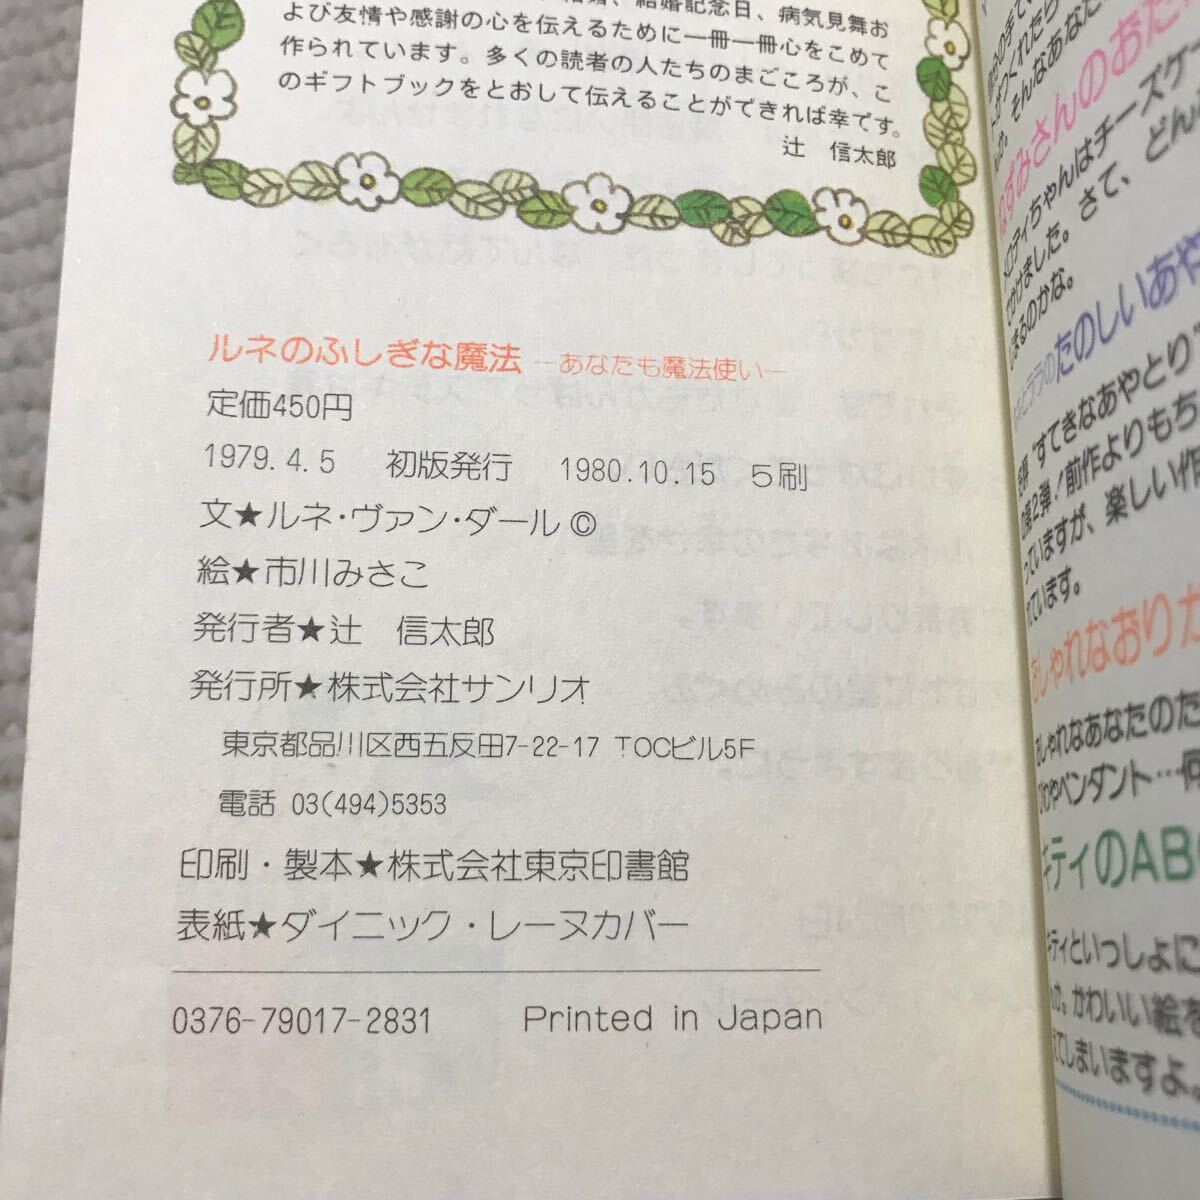 結婚記念日、病気見舞お
よび友情や感謝の心を伝えるために一冊一冊心をこめて
作られています。多くの読者の人たちのまごころが、こ
のギフトブックをとおして伝えることができれば幸です。
辻　信太郎
ルネのふしぎな魔法 —あなたも魔法使い—
定価450円
1979.4.5　初版発行　1980.10.15　5刷
文★ルネ・ヴァン・ダール©
絵★市川みさこ
発行者★辻　信太郎
発行所★株式会社サンリオ
東京都品川区西五反田7-22-17 TOCビル5F
電話 03(494)5353
印刷・製本★株式会社東京印書館
表紙★ダイニック・レーヌカバー
0376-79017-2831　Printed in Japan
そんなあなた
ずみさんのおた
ロディちゃんはチーズケ
でかけました。さて、どん
まるのかな。
ララのたのしいあや
"すてきなあやとり"
第2弾！前作よりもち
っていますが、楽しい作
れています。
しゃれなおりが
しゃれなあなたのた
びわやペンダント…何
キティのABC
キティといっしょに
か。かわいい絵を
えてしまいますよ。